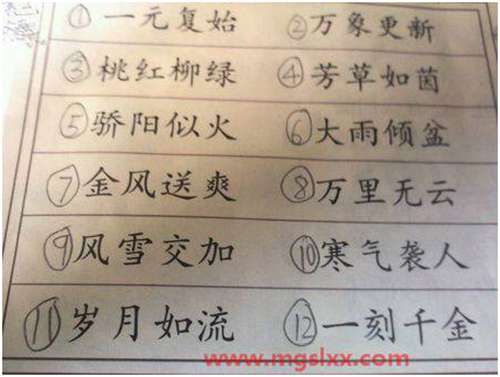 ①一元复始 ②万象更新
③桃红柳绿 ④芳草如茵
⑤骄阳似火 ⑥大雨倾盆
⑦金风送爽 ⑧万里无云
⑨风雪交加 ⑩寒气袭人
⑪岁月如流 ⑫一刻千金
www.mgslxx.com